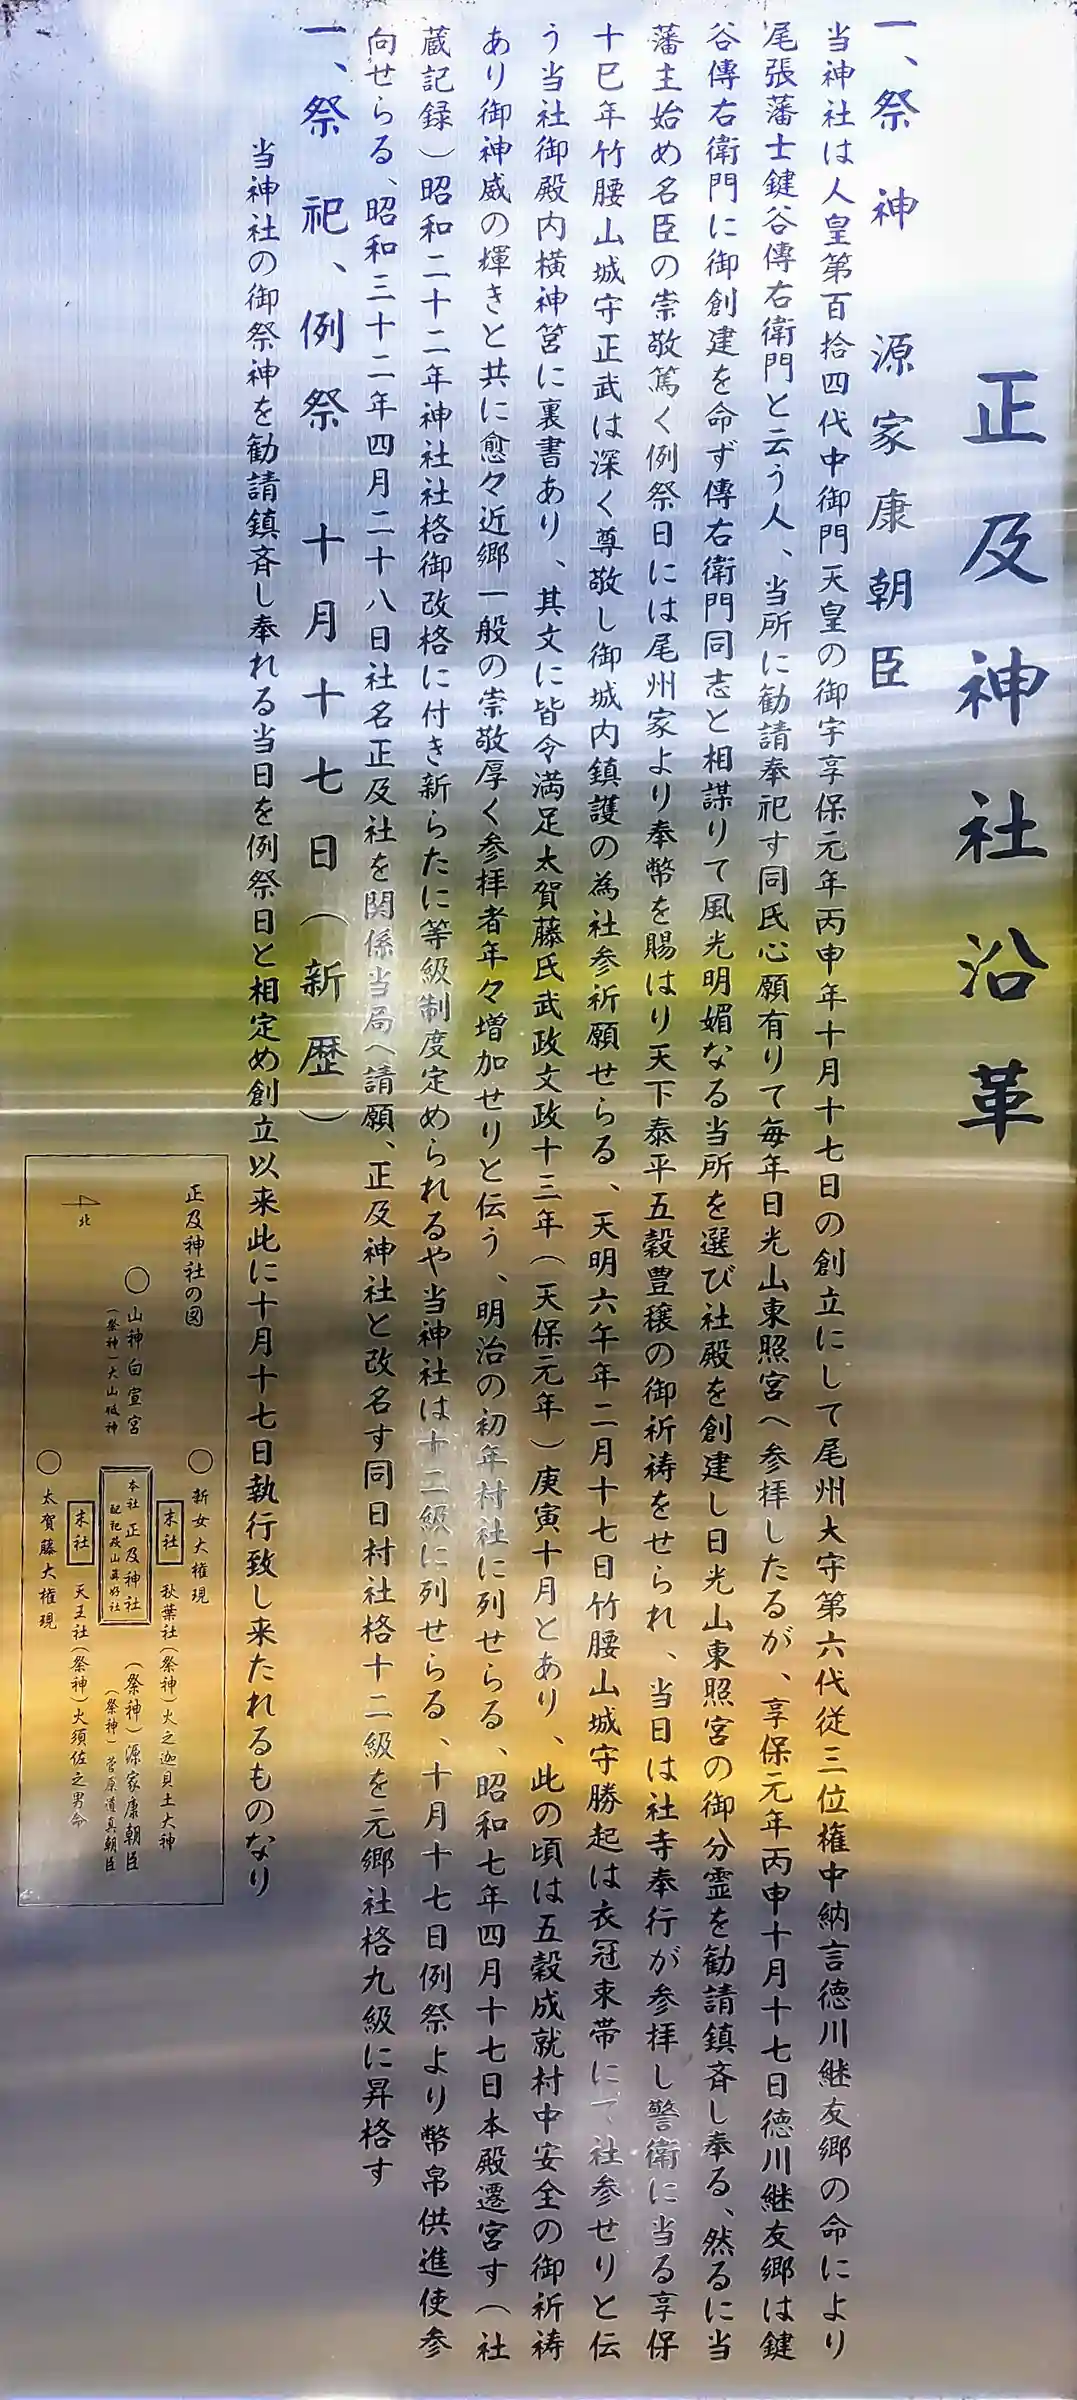 正及神社沿革
一、祭神　源家康朝臣
当神社は人皇第百拾四代中御門天皇の御宇享保元年丙申年十月十七日の創立にして尾州大守第六代従三位権中納言徳川継友郷の命により
尾張藩士鍵谷傳右衛門と云う人、当所に勧請奉祀す同氏心願有りて毎年日光山東照宮へ参拝したるが、享保元年丙申十月十七日徳川継友郷は鍵
谷傳右衛門に御創建を命ず傳右衛門同志と相謀りて風光明媚なる当所を選び社殿を創建し日光山東照宮の御分霊を勧請鎮斉し奉る、然るに当
藩主始め名臣の崇敬篤く例祭日には尾州家より奉幣を賜はり天下泰平五穀豊穣の御祈祷をせられ、当日は社寺奉行が参拝し警衛に当る享保
十巳年竹腰山城守正武は深く尊敬し御城内鎮護の為社参祈願せらる、天明六午年二月十七日竹腰山城守勝起は衣冠束帯にて社参せりと伝
う当社御殿内横神筥に裏書あり、其文に皆令満足太賀藤氏武政文政十三年（天保元年）庚寅十月とあり、此の頃は五穀成就村中安全の御祈祷
あり御神威の輝きと共に愈々近郷一般の崇敬厚く参拝者年々増加せりと伝う、明治の初年村社に列せらる、昭和七年四月十七日本殿遷宮す（社
蔵記録）昭和二十二年神社社格御改格に付き新らたに等級制度定められるや当神社は十二級に列せらる、十月十七日例祭より幣帛供進使参
向せらる、昭和三十二年四月二十八日社名正及社を関係当局へ請願、正及神社と改名す同日村社格十二級を元郷社格九級に昇格す
一、祭祀、例祭　十月十七日（新歴）
当神社の御祭神を勧請鎮斉し奉れる当日を例祭日と相定め創立以来此に十月十七日執行致し来たれるものなり
正及神社の図
北
山神白宣宮
（祭神）大山祇神
新女大権現
末社　秋葉社（祭神）火之迦具土大神
本社　正及神社（祭神）源家康朝臣
（祭神）菅原道真朝臣
末社　天王社（祭神）火須佐之男命
太賀藤大権現